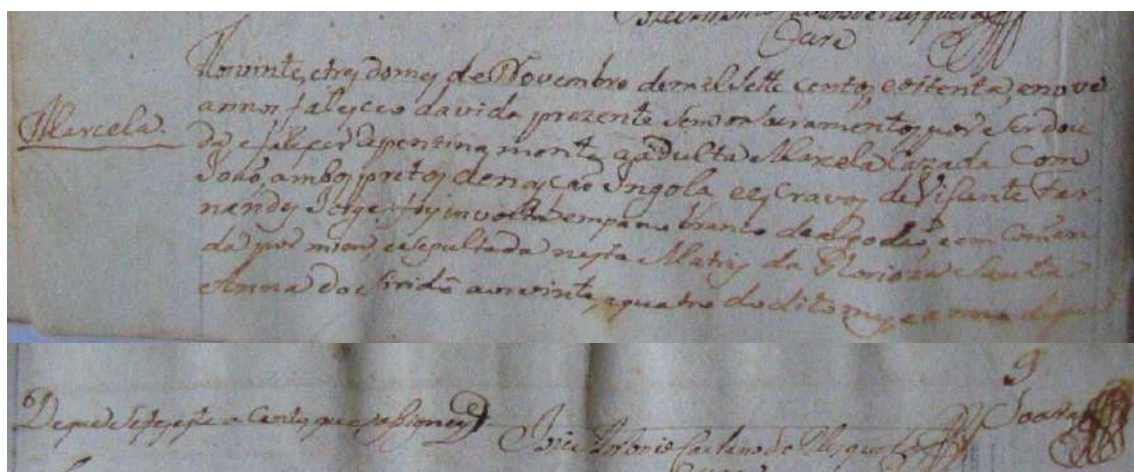 Cura
Marcela.
Aos vinte, e tres do mes de Novembro de mil e sette centos, e oitenta, e nove
annos faleceo da vida prezente sem os sacramentos por ser dou
da e falecer apentina monte, a adulta Marcela Cazada Com
Joaõ, ambos pretos de nasção Angola e escravos de Visente Fer-
nandes Jorge, foy involta em pano branco de algodaõ, e em Comen
da por mim, e sepultada nesta Matris da Glorioza Santa
Anna do Siridô aos vinte, e quatro do dito mes, e anno
De que se fez este acento, que asigney
Joze Antonio Caetano de Mesquita